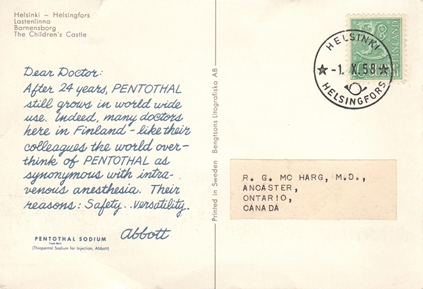 Helsinki — Helsingfors
Lastenlinna
Barnensborg
The Children's Castle
Dear Doctor:
After 24 years, PENTOTHAL
still grows in world wide
use. Indeed, many doctors
here in Finland - like their
colleagues the world over-
think of PENTOTHAL as
synonymous with intra-
venous anesthesia. Their
reasons: Safety.. versatility.
Abbott
PENTOTHAL SODIUM
(Thiopental Sodium for Injection, Abbott)
Printed in Sweden Bengtsons Litografiska AB
HELSINKI
-1. X. 58
HELSINGFORS
R. G. MC HARG, M.D.,
ANCASTER,
ONTARIO,
CANADA